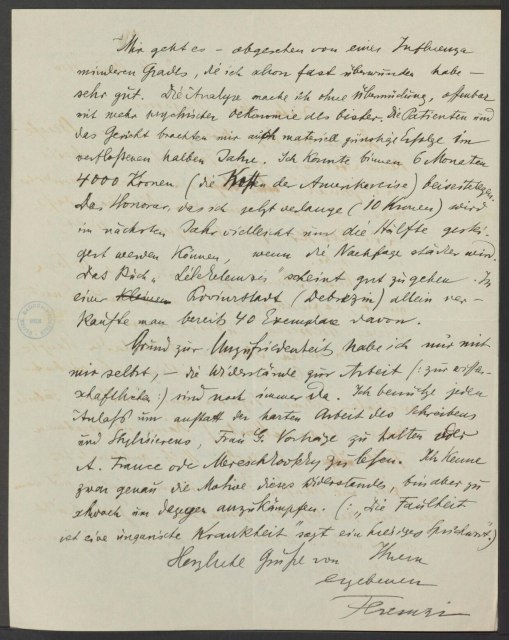 Mir geht es – abgesehen von einer Influenza
minderen Grades, die ich schon fast überwunden habe –
sehr gut. Die Analyse mache ich ohne Übermüdung, offenbar
mit mehr psychischer Oekonomie als bisher. Die Patienten und
das Gericht brachten mir auch materiell günstige Erfolge im
verflossenen halben Jahre. Ich konnte binnen 6 Monaten
4000 Kronen (die Kosten der Amerikareise) beiseitelegen.
Das Honorar, das ich jetzt verlange (10 Kronen) wird
im nächsten Jahr vielleicht um die Hälfte gestei-
gert werden können, wenn die Nachfrage stärker wird.
Das Buch „Lélekelemzés" scheint gut zu gehen. In
einer kleinen Provinzstadt (Debrezin) allein ver-
kaufte man bereits 40 Exemplare davon.
Grund zur Unzufriedenheit habe ich nur mit
mir selbst, – die Widerstände zur Arbeit (: zur wissen-
schaftlichen :) sind noch immer da. Ich benütze jeden
Anlaß um anstatt der harten Arbeit des Schreibens
und Stylisierens, Frau G. Vorträge zu halten oder
A. France oder Mereschkovsky zu lesen. Ich kenne
zwar genau die Motive dieses Widerstandes, bin aber zu
schwach um dagegen anzukämpfen. (: „Die Faulheit
ist eine ungarische Krankheit" sagt ein hiesiges Sprichwort :)
Herzliche Grüße von Ihrem
ergebenen
Ferenczi